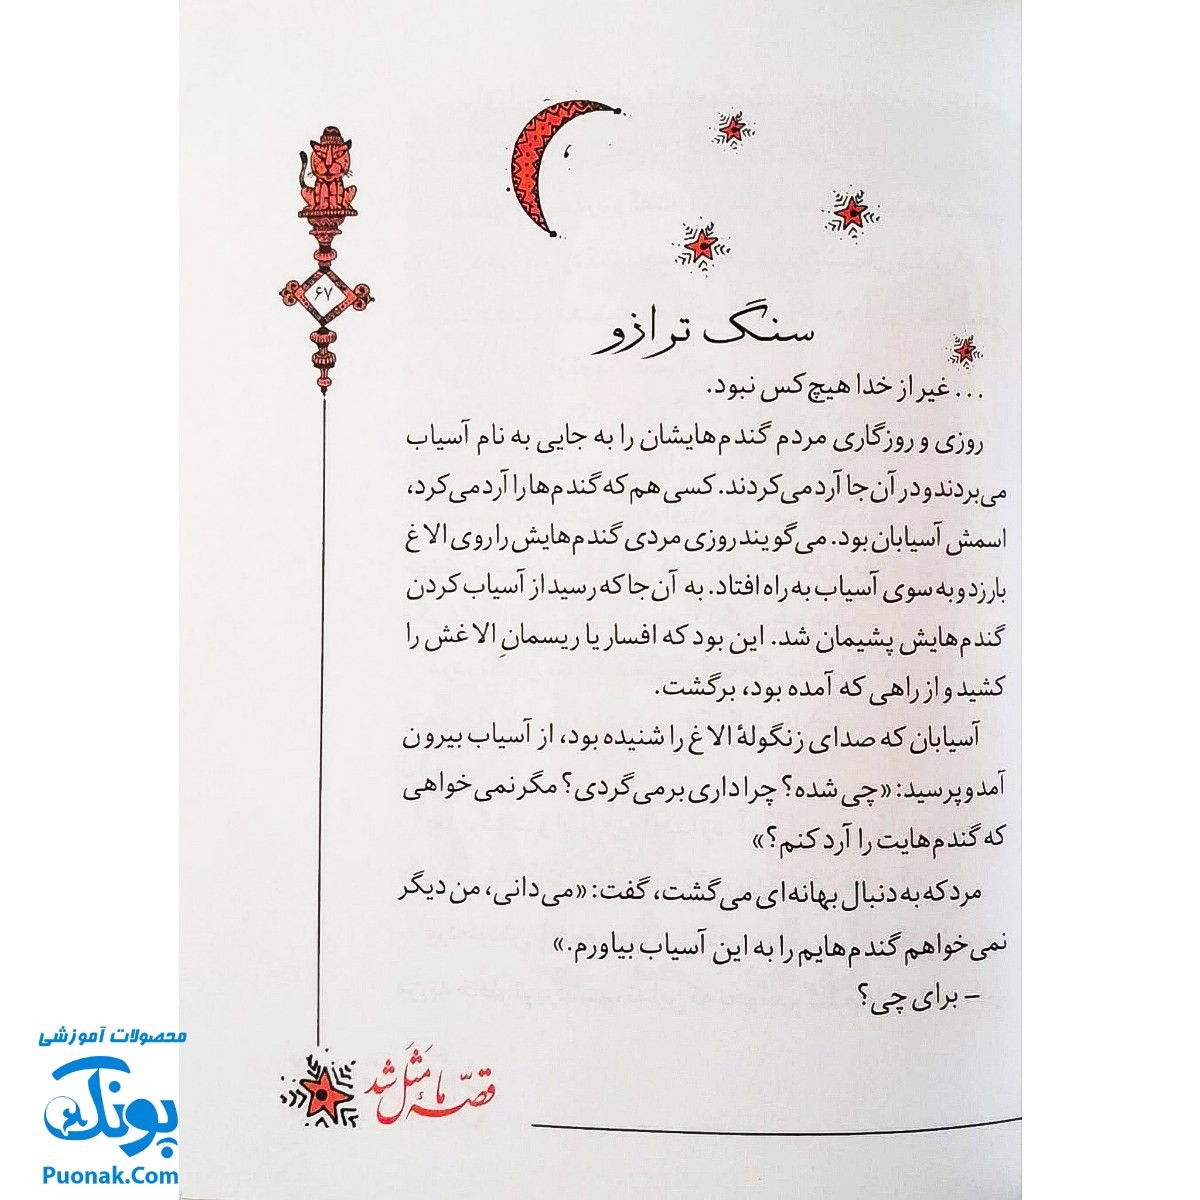 ۶۷
سنگ ترازو
... غیر از خدا هیچ‌کس نبود.
روزی و روزگاری مردم گندم‌هایشان را به جایی به نام آسیاب
می‌بردند و در آن‌جا آرد می‌کردند. کسی هم که گندم‌ها را آرد می‌کرد،
اسمش آسیابان بود. می‌گویند روزی مردی گندم‌هایش را روی الاغ
بارزد و به سوی آسیاب به راه افتاد. به آن‌جا که رسید از آسیاب کردن
گندم‌هایش پشیمان شد. این بود که افسار یا ریسمانِ الاغش را
کشید و از راهی که آمده بود، برگشت.
آسیابان که صدای زنگولهٔ الاغ را شنیده بود، از آسیاب بیرون
آمد و پرسید: «چی شده؟ چرا داری برمی‌گردی؟ مگر نمی‌خواهی
که گندم‌هایت را آرد کنم؟»
مرد که به دنبال بهانه‌ای می‌گشت، گفت: «می‌دانی، من دیگر
نمی‌خواهم گندم‌هایم را به این آسیاب بیاورم.»
– برای چی؟
قصّهٔ ما مَثَل شد
محصولات آموزشی
پونک
Puonak.Com